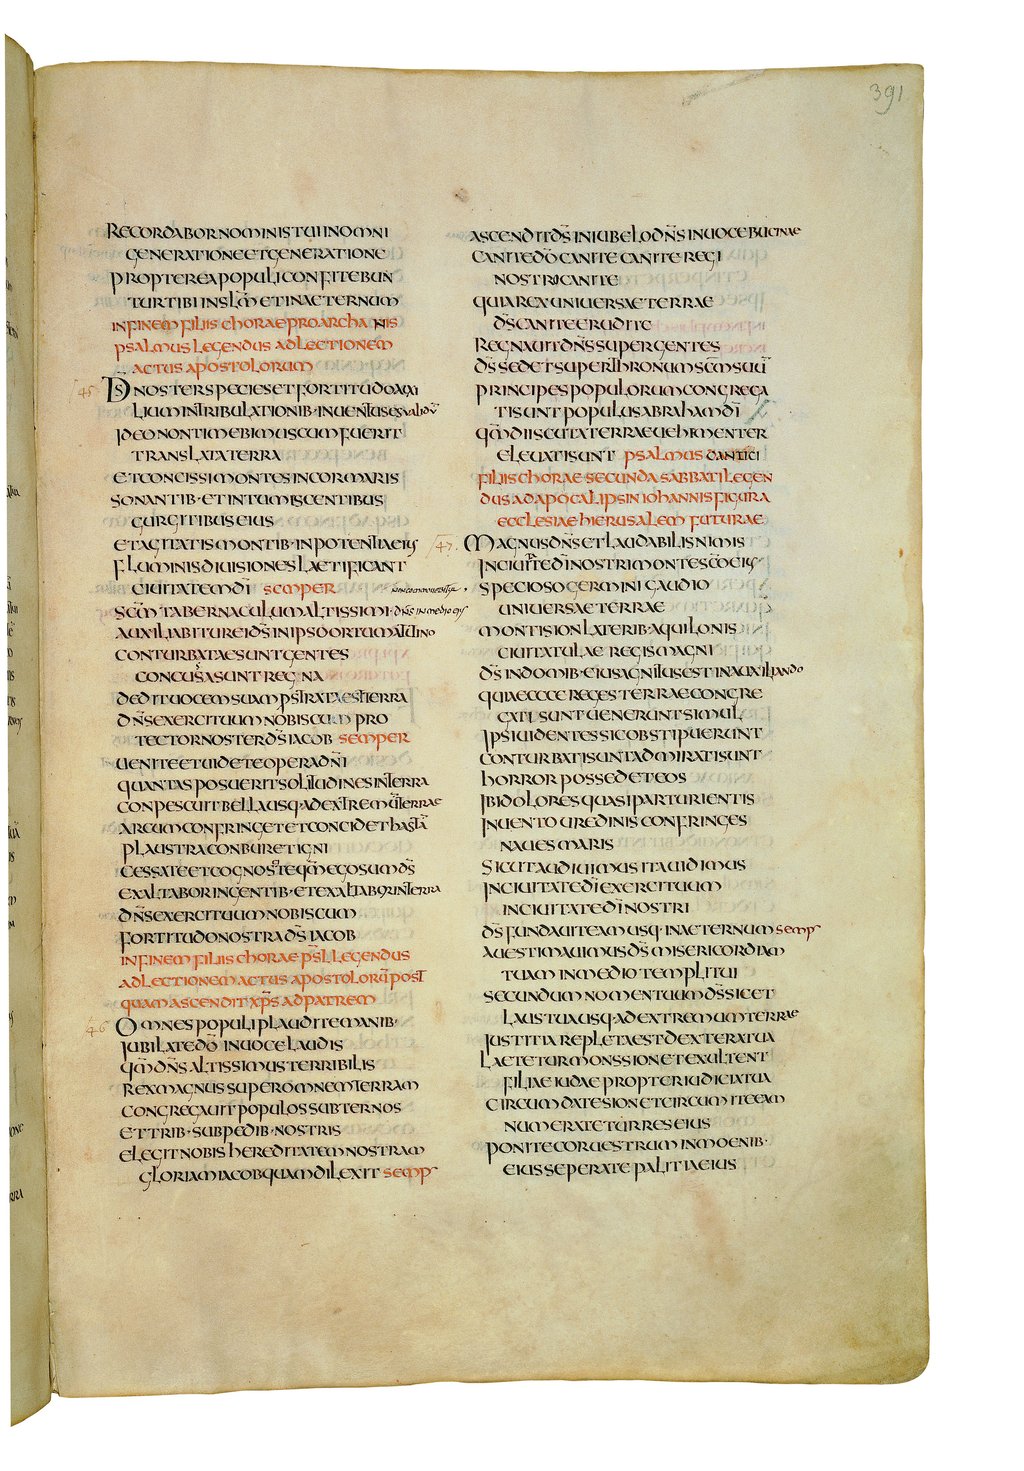 391
RECORDABOR NOMINIS TUI IN OMNI
GENERATIONE ET GENERATIONE
PROPTEREA POPULI CONFITEBUN
TUR TIBI IN SLM̄ ET IN AETERNUM
IN FINEM FILIIS CHORAE PRO ARCHANIS
PSALMUS LEGENDUS AD LECTIONEM
ACTUS APOSTOLORUM
45 D̄S NOSTER SPECIES ET FORTITUDO AUXI
LIUM IN TRIBULATIONIB· INUENTUS ES UALIDŪ
IDEO NON TIMEBIMUS CUM FUERIT
TRANSLATA TERRA
ET CONCUSSI MONTES IN COR MARIS
SONANTIB· ET INTUMISCENTIBUS
GURGITIBUS EIUS
ET AGITATIS MONTIB· IN POTENTIA EIUS
FLUMINIS DIUISIONES LAETIFICANT
CIUITATEM DĪ SEMPER
SCM̄ TABERNACULUM ALTISSIMI· DN̄S IN MEDIO EIUS
AUXILIABITUR EI D̄S IN IPSO ORTU MATUTINO
CONTURBATAE SUNT GENTES
CONCUSSA SUNT REGNA
DEDIT UOCEM SUAM PSTRATA EST TERRA
DN̄S EXERCITUUM NOBISCUM PRO
TECTOR NOSTER D̄S IACOB SEMPER
UENITE ET UIDETE OPERA DN̄I
QUANTAS POSUERIT SOLITUDINES IN TERRA
CONPESCUIT BELLA USQ· AD EXTREMŪ TERRAE
ARCUM CONFRINGET ET CONCIDET HASTĀ
PLAUSTRA CONBURET IGNI
CESSATE ET COGNOSCITE QM̄ EGO SUM D̄S
EXALTABOR IN GENTIB· ET EXALTAB9 IN TERRA
DN̄S EXERCITUUM NOBISCUM
FORTITUDO NOSTRA D̄S IACOB
IN FINEM FILIIS CHORAE PSL̄ LEGENDUS
AD LECTIONEM ACTUS APOSTOLORŪ POST
QUAM ASCENDIT XP̄S AD PATREM
46 OMNES POPULI PLAUDITE MANIB·
IUBILATE DŌ IN UOCE LAUDIS
QM̄ DN̄S ALTISSIMUS TERRIBILIS
REX MAGNUS SUPER OMNEM TERRAM
CONGREGAUIT POPULOS SUBTER NOS
ET TRIB· SUB PEDIB· NOSTRIS
ELEGIT NOBIS HEREDITATEM NOSTRAM
GLORIAM IACOB QUAM DILEXIT SEMP̄
ASCENDIT D̄S IN IUBELO DN̄S IN UOCE BUCINAE
CANITE DŌ CANITE CANITE REGI
NOSTRO CANITE
QUIA REX UNIUERSAE TERRAE
D̄S CANITE ERUDITE
REGNAUIT DN̄S SUPER GENTES
D̄S SEDET SUPER THRONUM SCM̄ SUŪ
PRINCIPES POPULORUM CONGREGA
TI SUNT POPULUS ABRAHAM DĪ
QM̄ DII SCUTA TERRAE UEHIMENTER
ELEUATI SUNT PSALMUS CANTICI
FILIIS CHORAE SECUNDA SABBATI LEGEN
DUS AD APOCALIPSIN IOHANNIS FIGURA
ECCLESIAE HIERUSALEM FUTURAE
47. MAGNUS DN̄S ET LAUDABILIS NIMIS
IN CIUITATE DĪ NOSTRI MONTE SCŌ EIUS
SPECIOSO GERMINI GAUDIO
UNIUERSAE TERRAE
MONTI SION LATERIB· AQUILONIS
CIUITATULAE REGIS MAGNI
D̄S IN DOMIB· EIUS AGNITUS EST IN AUXILIANDO
QUIA ECCE REGES TERRAE CONGRE
GATI SUNT UENERUNT SIMUL
IPSI UIDENTES SIC OBSTIPUERUNT
CONTURBATI SUNT ADMIRATI SUNT
HORROR POSSEDET EOS
IBI DOLORES QUASI PARTURIENTIS
IN UENTO UREDINIS CONFRINGES
NAUES MARIS
SICUT AUDIUIMUS ITA UIDIMUS
IN CIUITATE DĪ EXERCITUUM
IN CIUITATE DĪ NOSTRI
D̄S FUNDAUIT EAM USQ· IN AETERNUM SEMP̄
AUESTIMAUIMUS D̄S MISERICORDIAM
TUAM IN MEDIO TEMPLI TUI
SECUNDUM NOMEN TUUM D̄S SIC ET
LAUS TUA USQ· AD EXTREMUM TERRAE
IUSTITIA REPLETA EST DEXTERA TUA
LAETETUR MONS SION ET EXULTENT
FILIAE IUDAE PROPTER IUDICIA TUA
CIRCUMDATE SION ET CIRCUMITE EAM
NUMERATE TURRES EIUS
PONITE COR UESTRUM IN MOENIB·
EIUS SEPERATE PALITIA EIUS